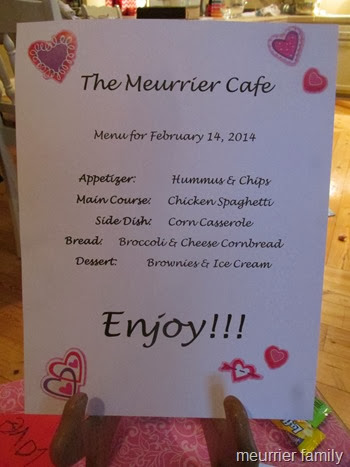 The Meurrier Cafe
Menu for February 14, 2014
Appetizer: Hummus & Chips
Main Course: Chicken Spaghetti
Side Dish: Corn Casserole
Bread: Broccoli & Cheese Cornbread
Dessert: Brownies & Ice Cream
Enjoy!!!
meurrier family